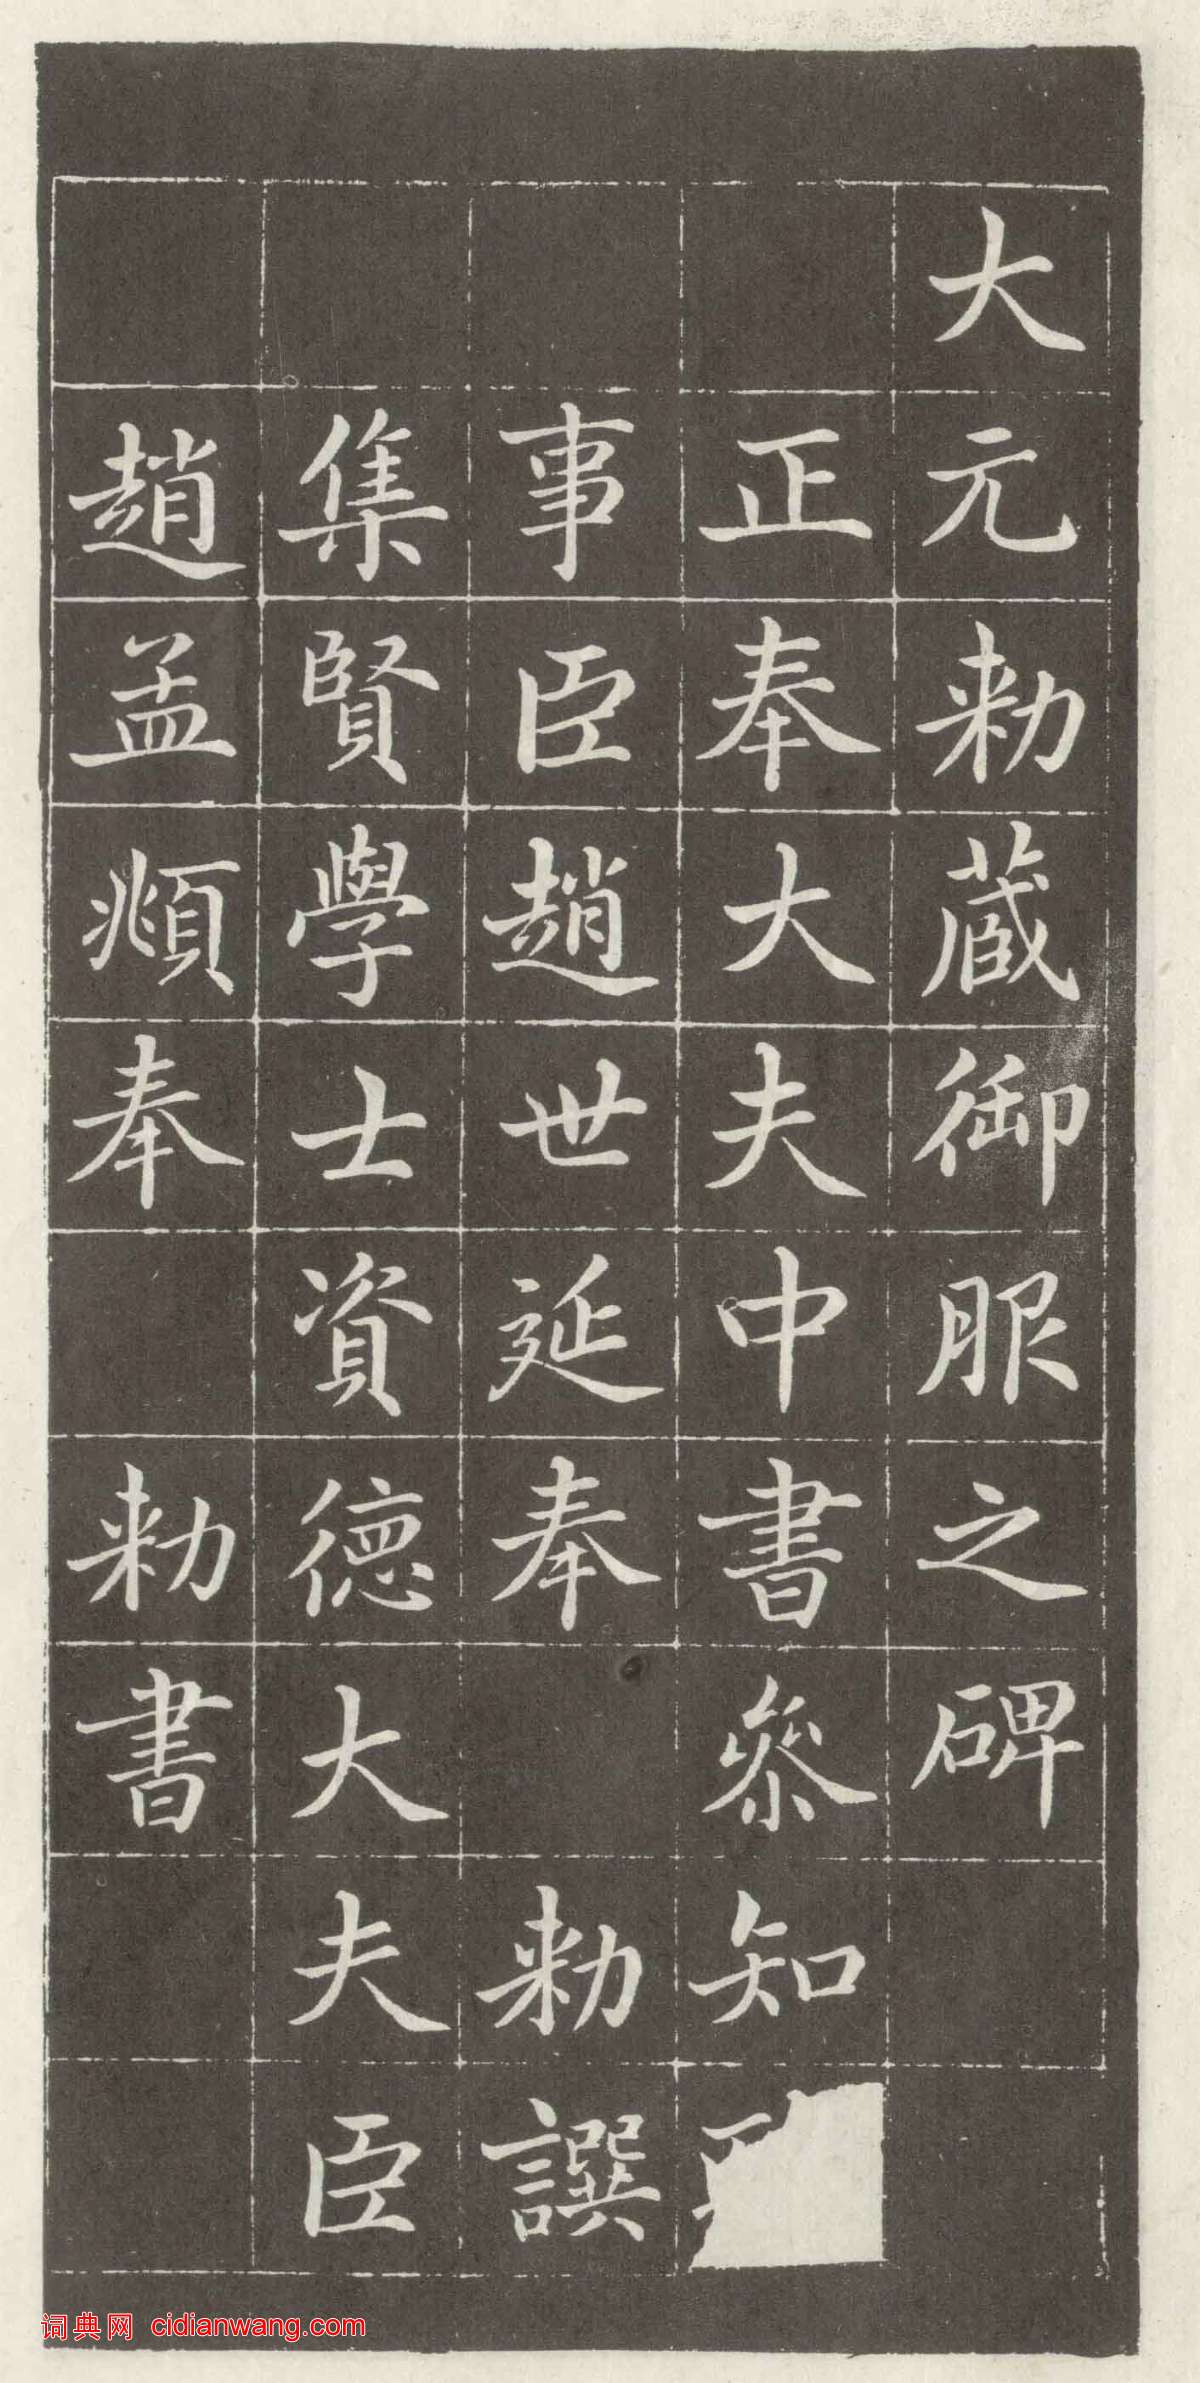 大元勑蔵御服之碑
正奉大夫中書叅知
事臣趙世延奉勑譔
集賢學士資德大夫臣
趙孟頫奉勑書
词典网 cidianwang.com